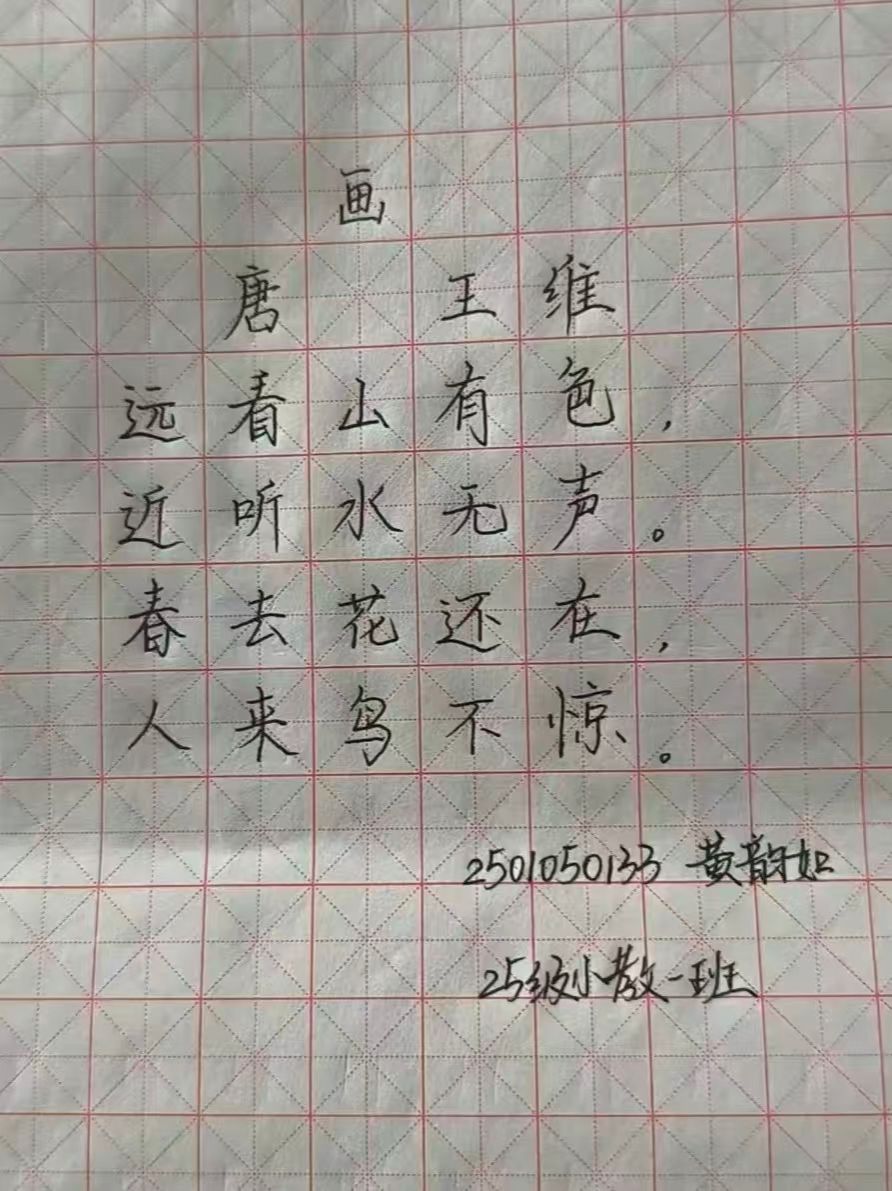 画
唐 王维
远看山有色，
近听水无声。
春去花还在，
人来鸟不惊。
2501050133 黄韵如
25级小教一班